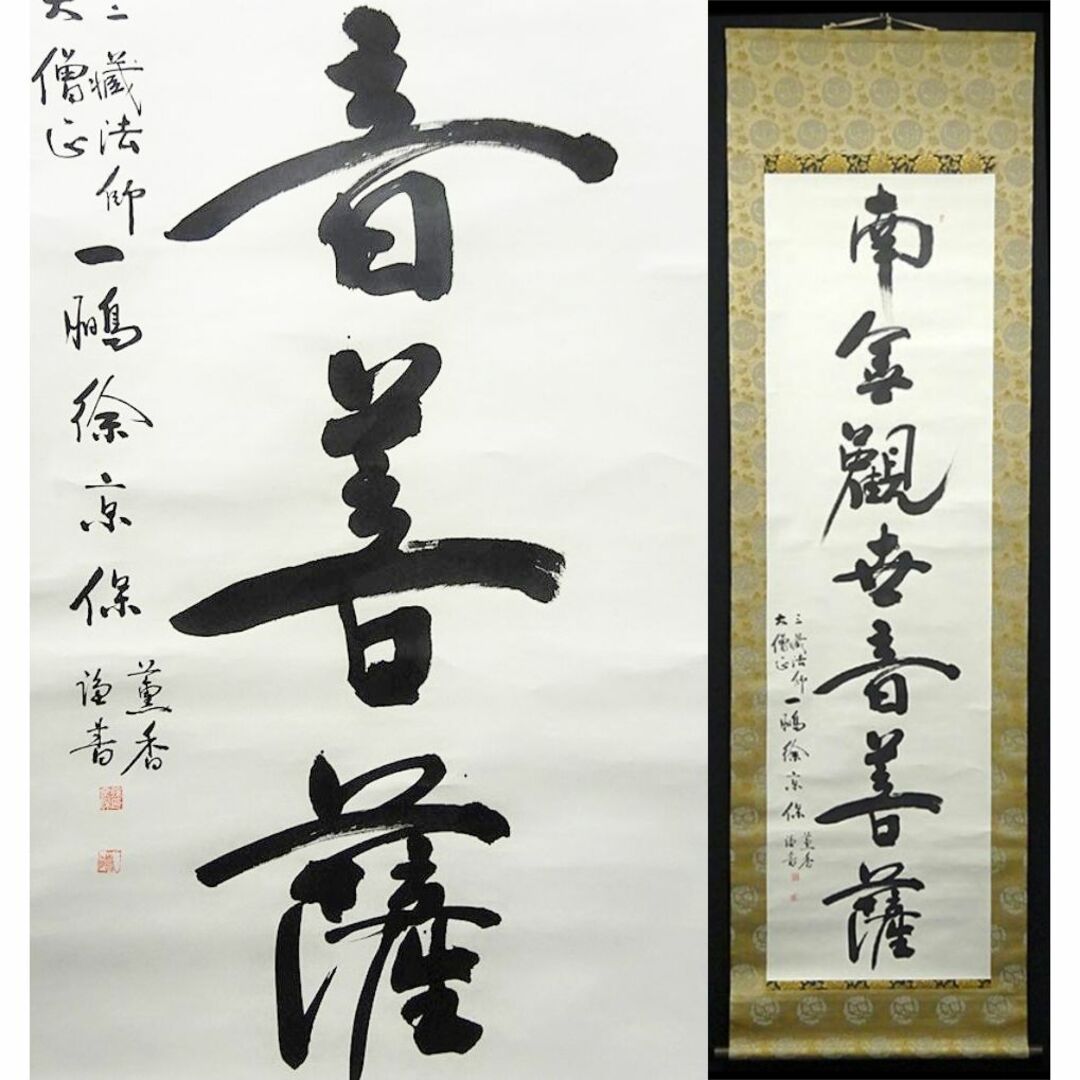 音菩薩
三藏法師
大僧正
一鵬徐京保
薫香
謹書
南無觀世音菩薩
三藏法師
大僧正
一鵬徐京保
薫香
謹書